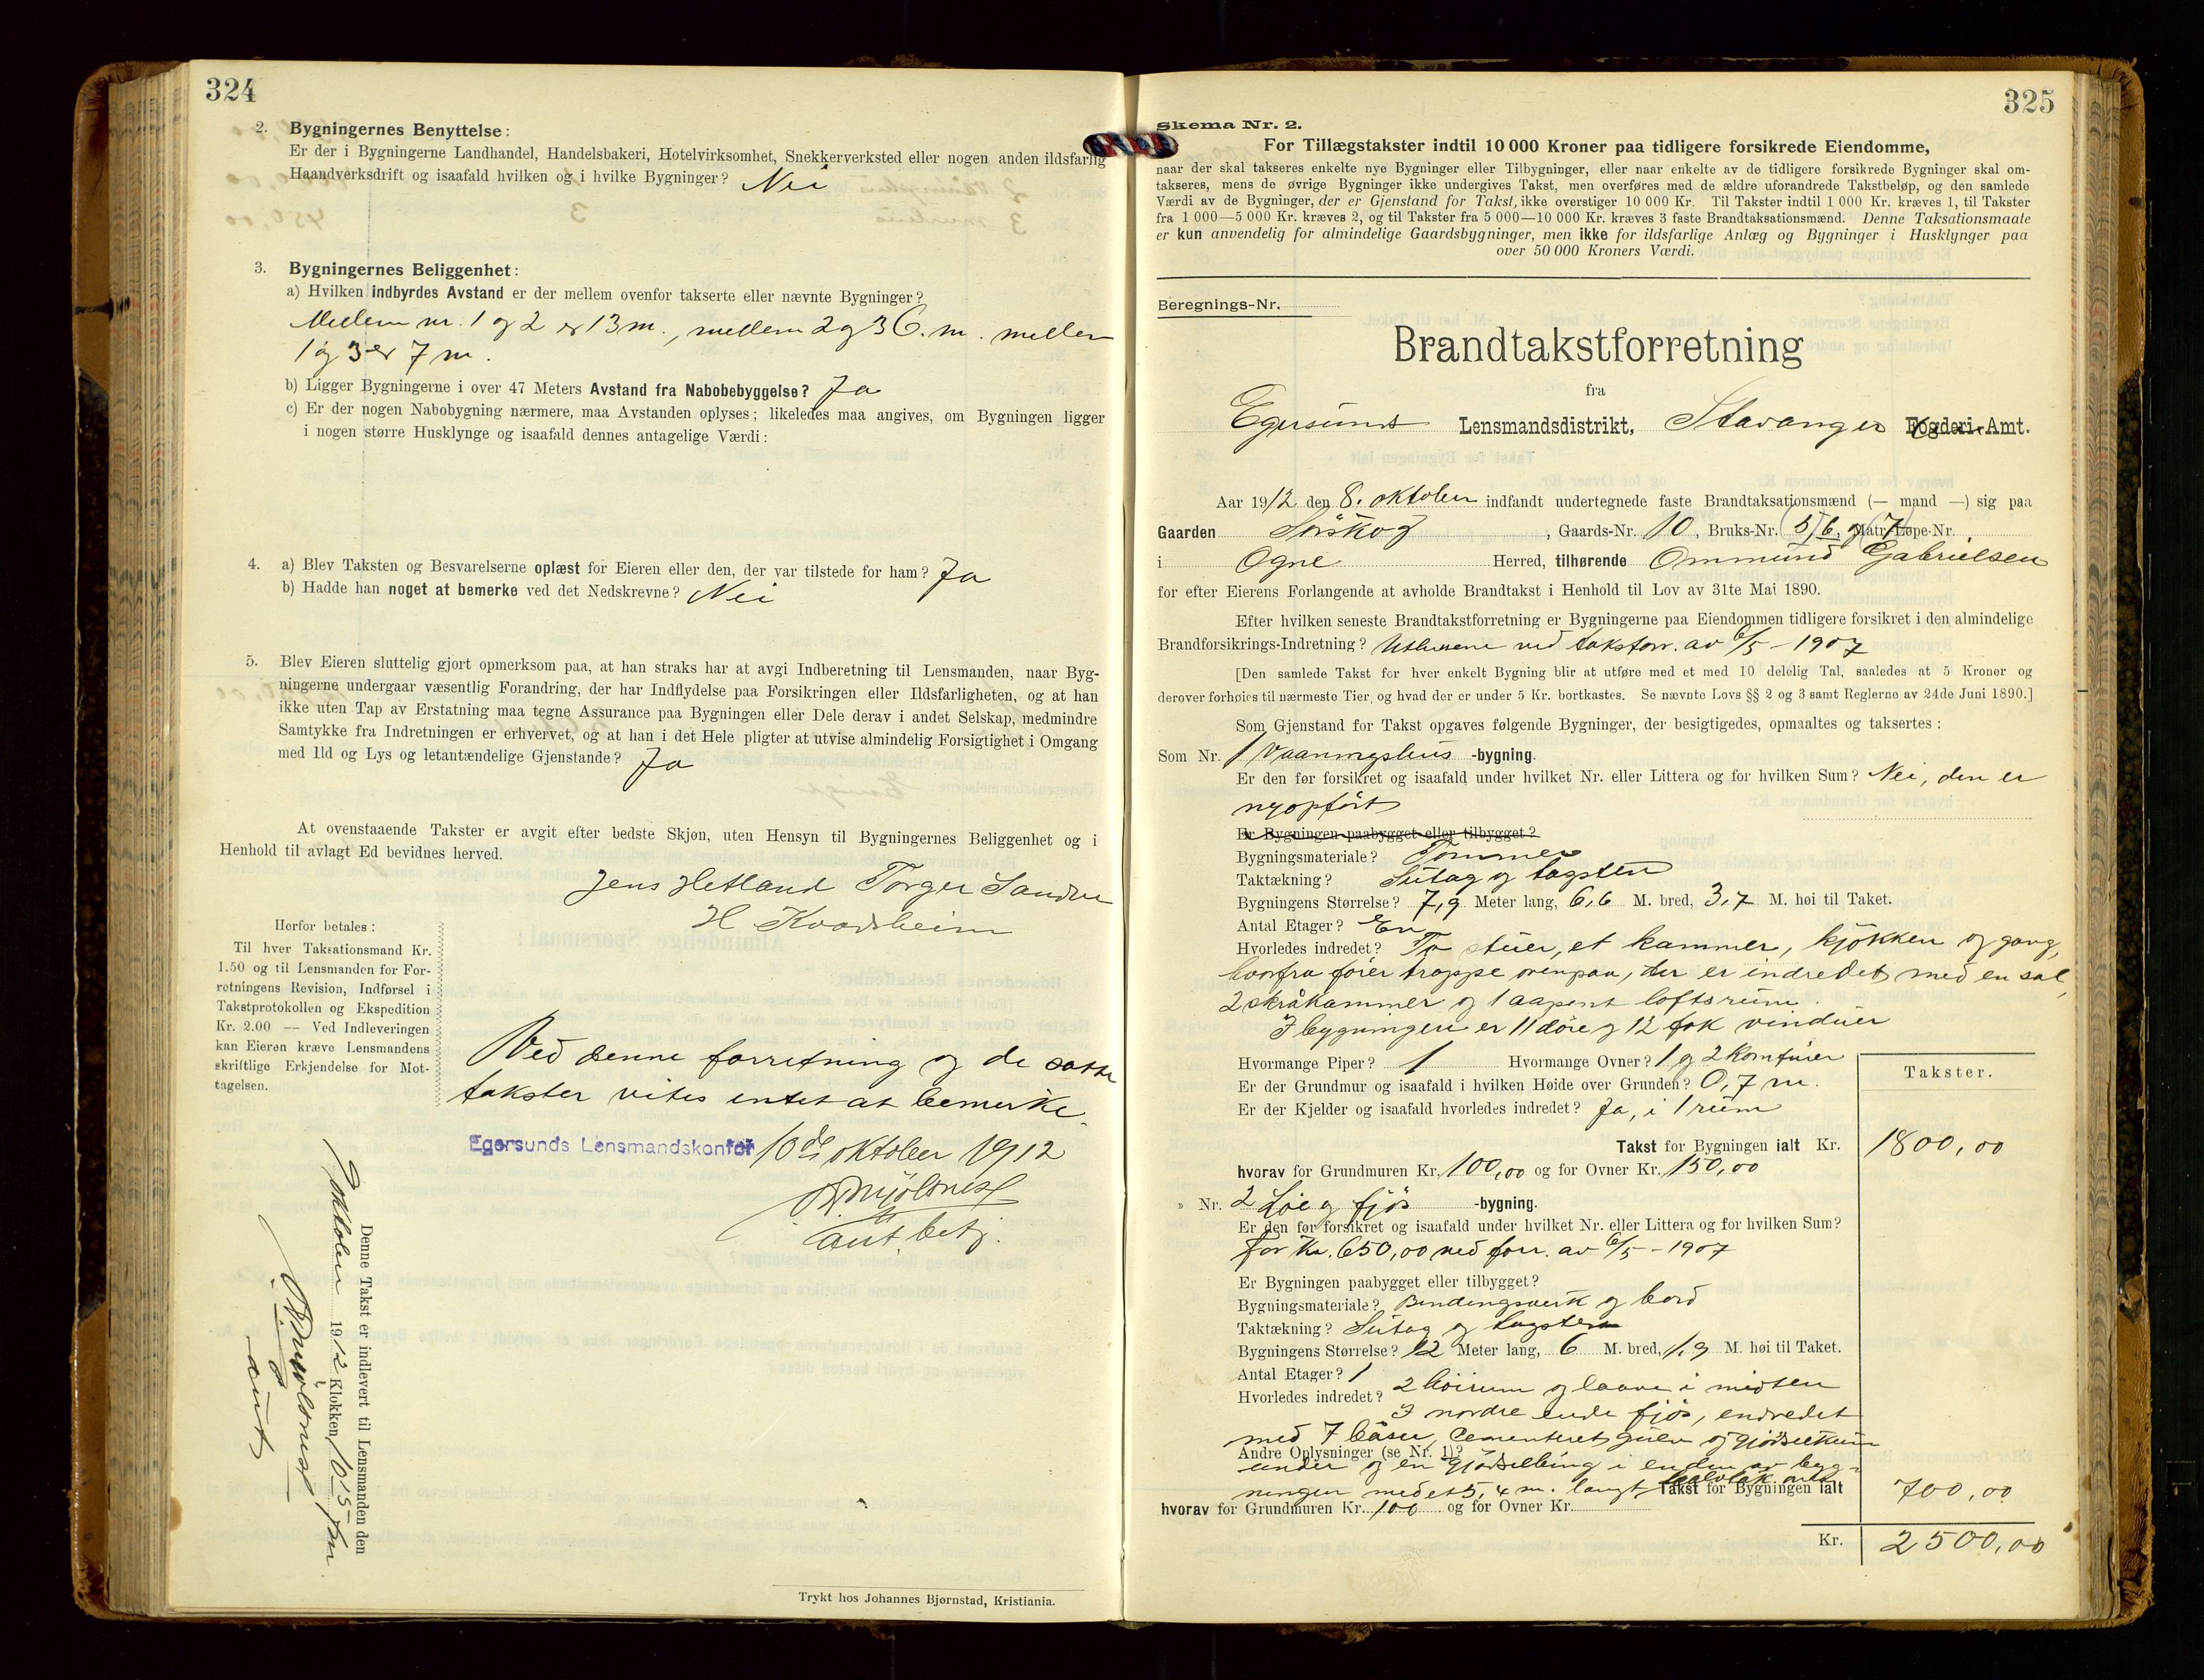 324
2. Bygningernes Benyttelse:
Er der i Bygningerne Landhandel, Handelsbakeri, Hotelvirksomhet, Snekkerverksted eller nogen anden ildsfarlig
Haandverksdrift og isaafald hvilken og i hvilke Bygninger? Nei
3. Bygningernes Beliggenhet:
a) Hvilken indbyrdes Avstand er der mellem ovenfor takserte eller nævnte Bygninger?
Mellem nr. 1 og 2 er 13 m., mellem 2 og 3 6. m. mellem
1 og 3 er 7 m.
b) Ligger Bygningerne i over 47 Meters Avstand fra Nabobebyggelse? Ja
c) Er der nogen Nabobygning nærmere, maa Avstanden oplyses; likeledes maa angives, om Bygningen ligger
i nogen større Husklynge og isaafald dennes antagelige Værdi:
4. a) Blev Taksten og Besvarelserne oplæst for Eieren eller den, der var tilstede for ham? Ja
b) Hadde han noget at bemerke ved det Nedskrevne? Nei
5. Blev Eieren sluttelig gjort opmerksom paa, at han straks har at avgi Indberetning til Lensmanden, naar Byg-
ningerne undergaar væsentlig Forandring, der har Indflydelse paa Forsikringen eller Ildsfarligheten, og at han
ikke uten Tap av Erstatning maa tegne Assurance paa Bygningen eller Dele derav i andet Selskap, medmindre
Samtykke fra Indretningen er erhvervet, og at han i det Hele pligter at utvise almindelig Forsigtighet i Omgang
med Ild og Lys og letantændelige Gjenstande? Ja
At ovenstaaende Takster er avgit efter bedste Skjøn, uten Hensyn til Bygningernes Beliggenhet og i
Henhold til avlagt Ed bevidnes herved.
Jens Hetland Torger Sandve
H Kvadsheim
Herfor betales:
Til hver Taksationsmand Kr.
1.50 og til Lensmanden for For-
retningens Revision, Indførsel i
Takstprotokollen og Ekspedition
Kr. 2.00 — Ved Indleveringen
kan Eieren kræve Lensmandens
skriftlige Erkjendelse for Mot-
tagelsen.
Ved denne forretning og de satte
takster vites intet at bemerke.
Egersunds Lensmandskontor 10de oktober 1912
aut. betj.
Denne Takst er indlevert til Lensmanden den
oktober 1912 Klokken 10 15 fm
aut
Trykt hos Johannes Bjørnstad, Kristiania.
325
Skema Nr. 2.
For Tillægstakster indtil 10 000 Kroner paa tidligere forsikrede Eiendomme,
naar der skal takseres enkelte nye Bygninger eller Tilbygninger, eller naar enkelte av de tidligere forsikrede Bygninger skal om-
takseres, mens de øvrige Bygninger ikke undergives Takst, men overføres med de ældre uforandrede Takstbeløp, og den samlede
Værdi av de Bygninger, der er Gjenstand for Takst, ikke overstiger 10 000 Kr. Til Takster indtil 1 000 Kr. kræves 1, til Takster
fra 1 000—5 000 Kr. kræves 2, og til Takster fra 5 000—10 000 Kr. kræves 3 faste Brandtaksationsmænd. Denne Taksationsmaate
er kun anvendelig for almindelige Gaardsbygninger, men ikke for ildsfarlige Anlæg og Bygninger i Husklynger paa
over 50 000 Kroners Værdi.
Beregnings-Nr.
Brandtakstforretning
fra
Egersunds Lensmandsdistrikt, Stavanger Fogderi-Amt.
Aar 1912 den 8. oktober indfandt undertegnede faste Brandtaksationsmænd (— mand —) sig paa
Gaarden Sørskog, Gaards-Nr. 10, Bruks-Nr. 5, 6, og 7 Matr.-Løpe-Nr.
i Ogne Herred, tilhørende Ommund Gabrielsen
for efter Eierens Forlangende at avholde Brandtakst i Henhold til Lov av 31te Mai 1890.
Efter hvilken seneste Brandtakstforretning er Bygningerne paa Eiendommen tidligere forsikret i den almindelige
Brandforsikrings-Indretning? Uthusene ved takstforr. av 6/5 - 1907
[Den samlede Takst for hver enkelt Bygning blir at utføre med et med 10 delelig Tal, saaledes at 5 Kroner og
derover forhøies til nærmeste Tier, og hvad der er under 5 Kr. bortkastes. Se nævnte Lovs §§ 2 og 3 samt Reglerne av 24de Juni 1890.]
Som Gjenstand for Takst opgaves følgende Bygninger, der besigtigedes, opmaaltes og taksertes:
Som Nr. 1 Vaaningshus -bygning.
Er den før forsikret og isaafald under hvilket Nr. eller Littera og for hvilken Sum? Nei, den er
nyopført
Er Bygningen paabygget eller tilbygget?
Bygningsmateriale? Tømmer
Taktækning? Sutag og tagsten
Bygningens Størrelse? 7,9 Meter lang, 6,6 M. bred, 3,7 M. høi til Taket.
Antal Etager? En
Hvorledes indredet? To stuer, et kammer, kjøkken og gang,
hvorfra fører trappe ovenpaa, der er indredet med en sal,
2 skråkammer og 1 aapent loftsrum.
I bygningen er 11 døre og 12 fak vinduer
Hvormange Piper? 1 Hvormange Ovner? 1 og 2 Komfurer
Er der Grundmur og isaafald i hvilken Høide over Grunden? 0,7 m.
Er der Kjelder og isaafald hvorledes indredet? Ja, i 1 rum
Takster.
Takst for Bygningen ialt Kr. 1800,00
hvorav for Grundmuren Kr. 100,00 og for Ovner Kr. 150,00
» Nr. 2 Løe og fjøs -bygning.
Er den før forsikret og isaafald under hvilket Nr. eller Littera og for hvilken Sum?
For Kr. 650,00 ved forr. av 6/5 - 1907
Er Bygningen paabygget eller tilbygget?
Bygningsmateriale? Bindingsverk og bord
Taktækning? Sutag og tagsten
Bygningens Størrelse? 12 Meter lang, 6 M. bred, 1,9 M. høi til Taket.
Antal Etager? 1
Hvorledes indredet? 2 høirum og laave i midten
I nordre ende fjøs, indredet
med 7 båser, cementeret gulv og gjødselkum
Andre Oplysninger (se Nr. 1)?
under og en gjødselbing i enden av byg-
ningen med et 5,4 m. langt halvtak over
Takst for Bygningen ialt 700,00
hvorav for Grundmuren Kr. 100 og for Ovner Kr.
Kr. 2500,00